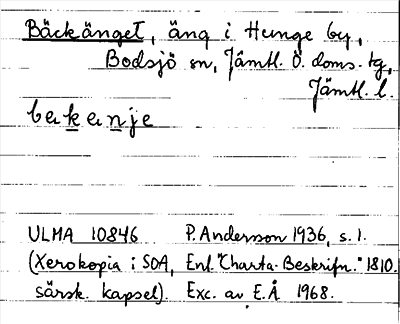 Bäckänget, äng i Hunge by,
Bodsjö sn, Jämtl. Ö. doms. tg,
Jämtl. l.
bekenje
ULMA 10846 P. Andersson 1936, s. 1.
(Xerokopia i SOA, Enl. "Charta-Beskrifn." 1810.
särsk. kapsel). Exc. av E.Å 1968.